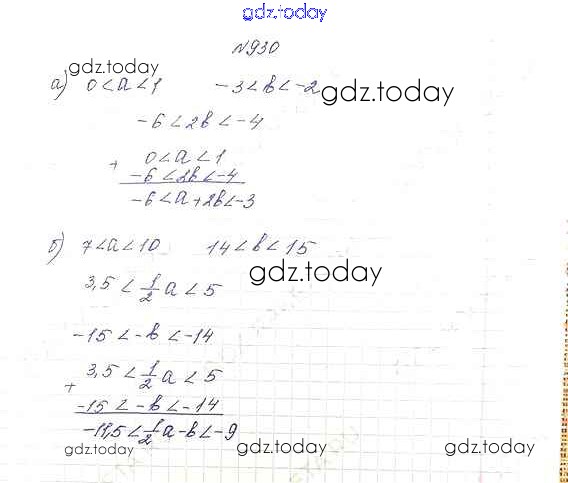 gdz.today
№930
gdz.today
а) 0<a<1 -3<b<-2 gdz.today
-6<2b<-4
+ 0<a<1
-6<2b<-4
-6<a+2b<-3
б) 7<a<10 14<b<15
gdz.today
3,5<1/2a<5
-15<-b<-14
+ 3,5<1/2a<5
-15<-b<-14
-11,5<1/2a-b<-9
gdz.today gdz.today gdz.today